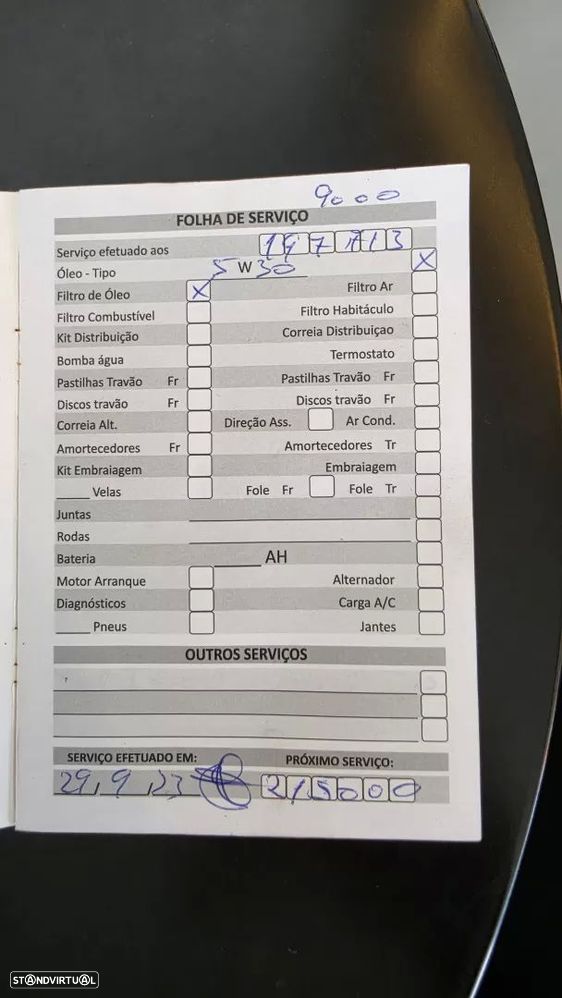 9000
FOLHA DE SERVIÇO
Serviço efetuado aos 197713
Óleo - Tipo 5 W 30 X
Filtro de Óleo X Filtro Ar
Filtro Combustível Filtro Habitáculo
Kit Distribuição Correia Distribuiçao
Bomba água Termostato
Pastilhas Travão Fr Pastilhas Travão Fr
Discos travão Fr Discos travão Fr
Correia Alt. Direção Ass. Ar Cond.
Amortecedores Fr Amortecedores Tr
Kit Embraiagem Embraiagem
_____ Velas Fole Fr Fole Tr
Juntas
Rodas
Bateria ______ AH
Motor Arranque Alternador
Diagnósticos Carga A/C
_____ Pneus Jantes
OUTROS SERVIÇOS
SERVIÇO EFETUADO EM: PRÓXIMO SERVIÇO:
29, 9, 23 215000
STANDVIRTUAL